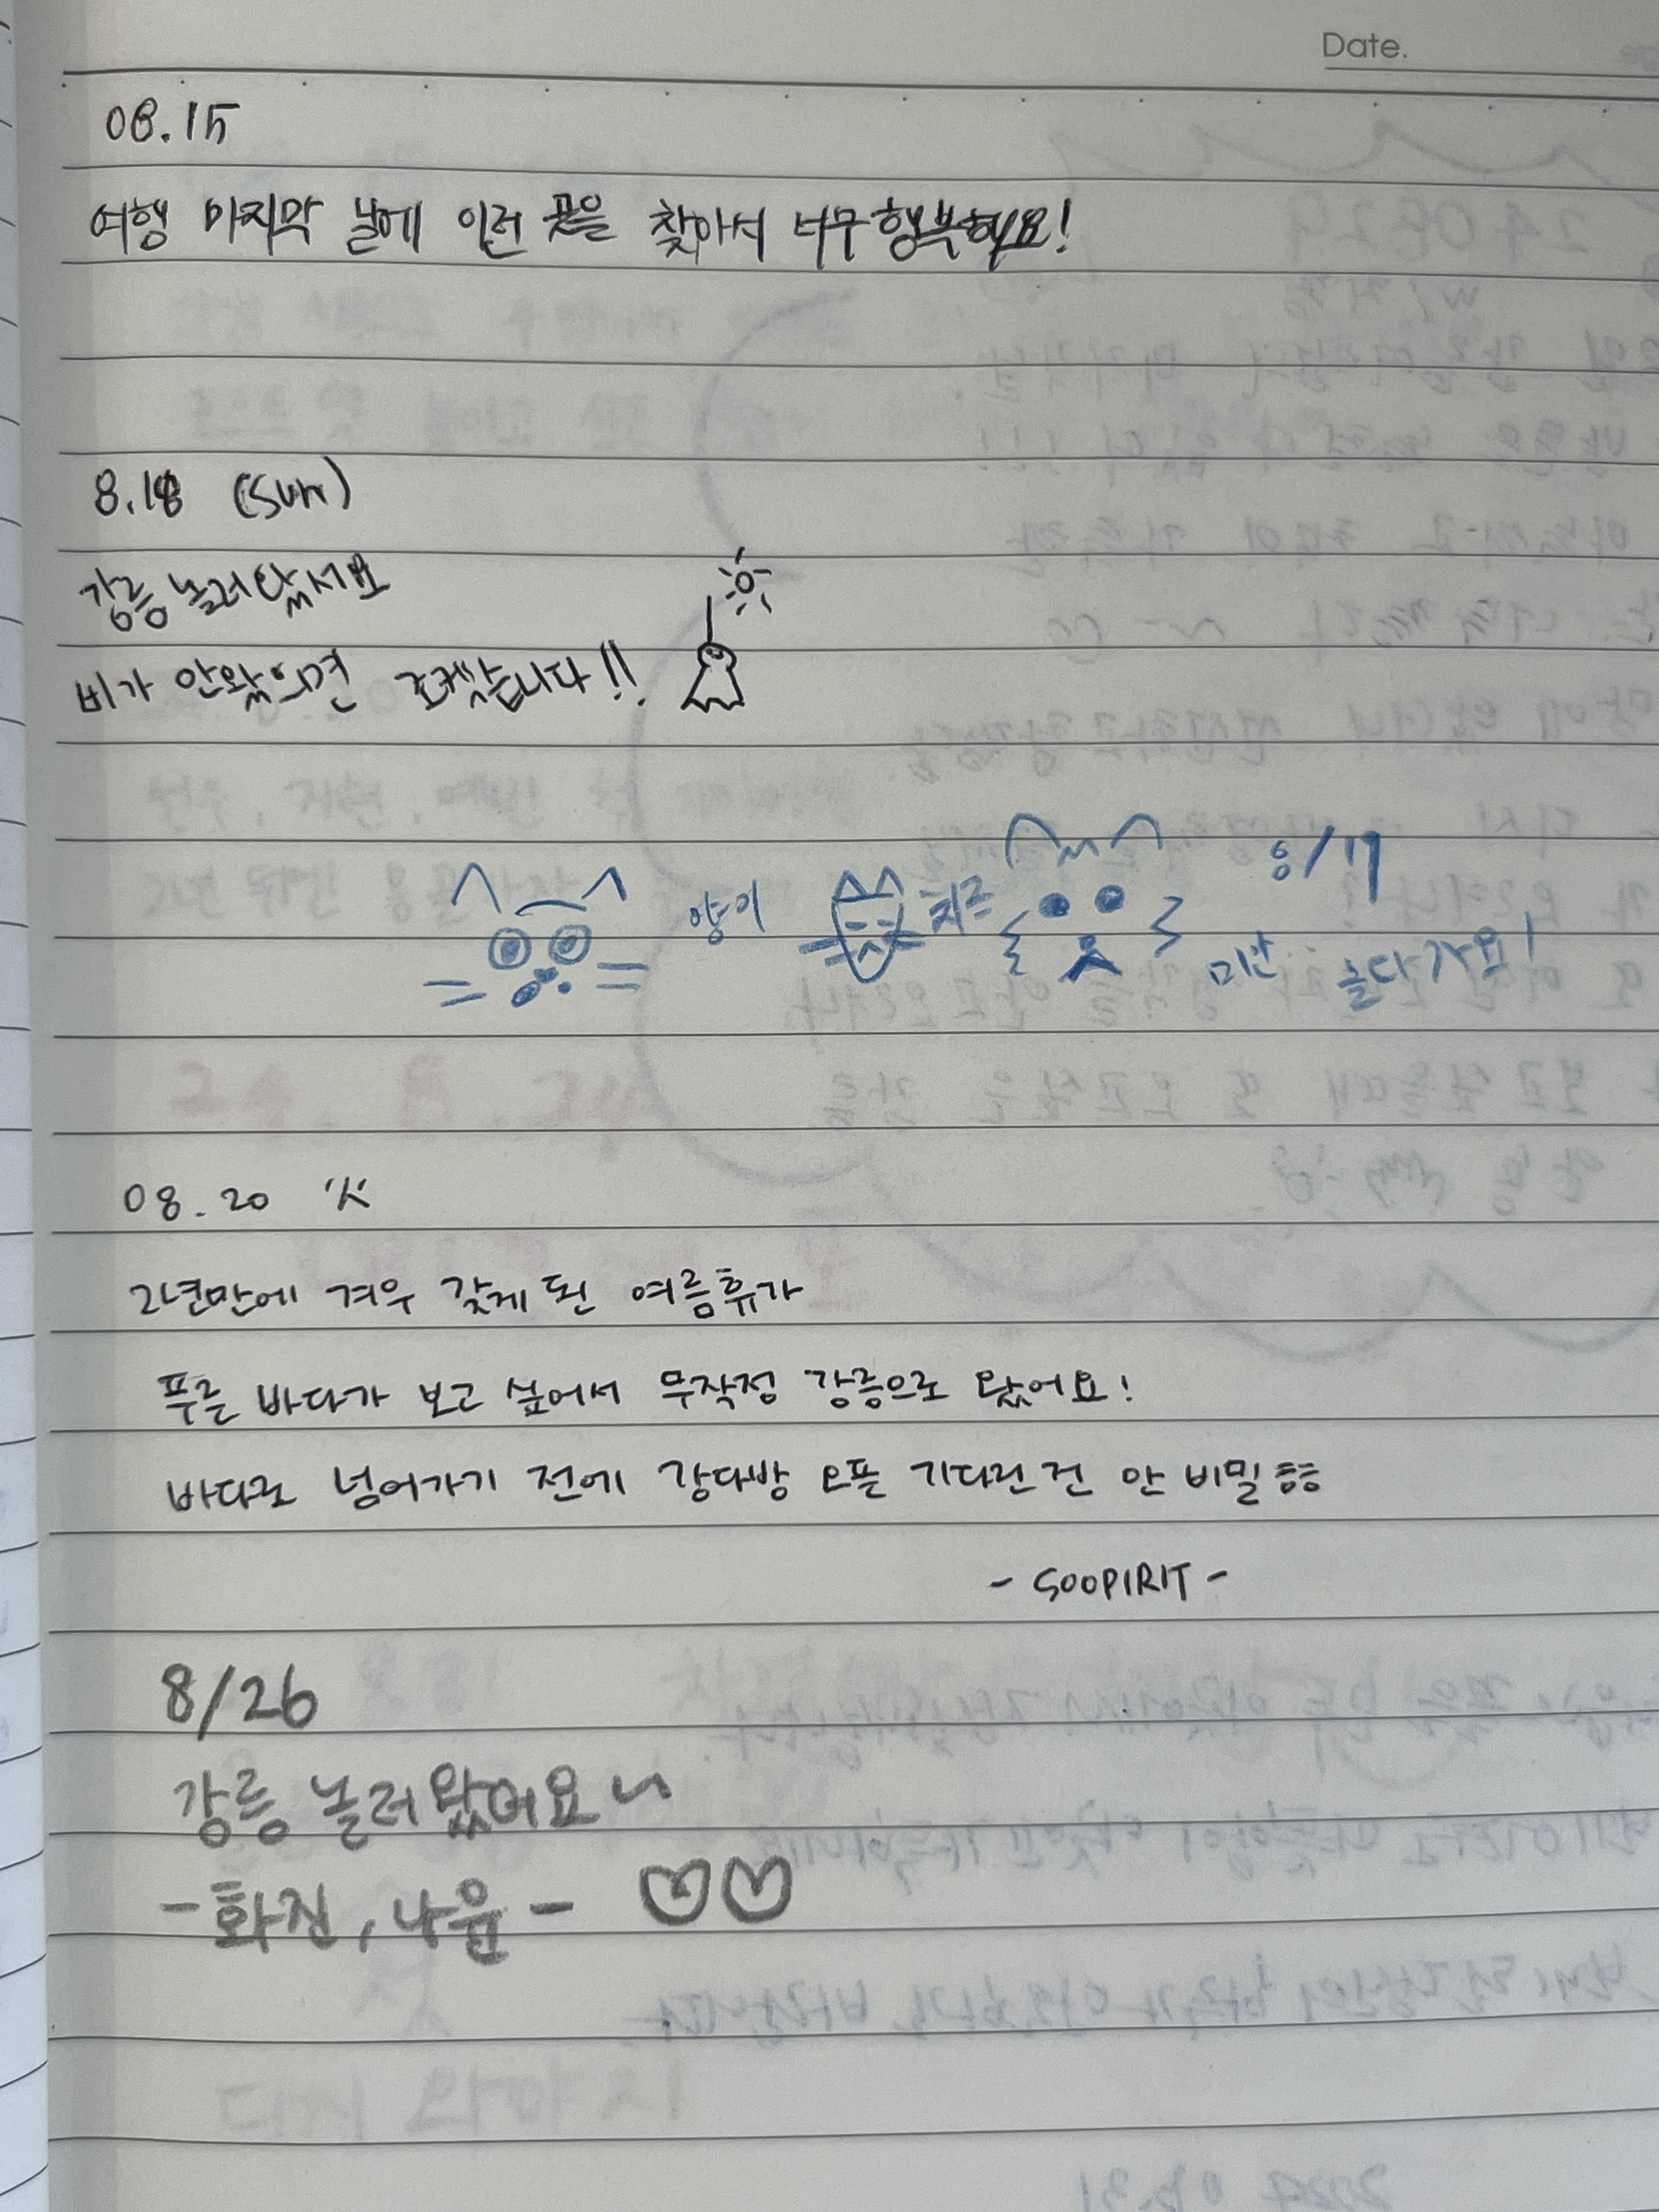 Date.
08.15
여행 마지막 날에 이런 곳을 찾아서 너무 행복해요!
8.18 (sun)
강릉 놀러왔서요
비가 안왔으면 조켔습니다!!
8/19
양이 치즈 미안 놀다가요!
08.20 火
2년만에 겨우 갖게 된 여름휴가
푸른 바다가 보고 싶어서 무작정 강릉으로 왔어요!
바다로 넘어가기 전에 강다방 오픈 기다린 건 안 비밀ㅎㅎ
- SOOPIRIT -
8/26
강릉 놀러왔어요~
- 화진, 나윤 - ♡♡